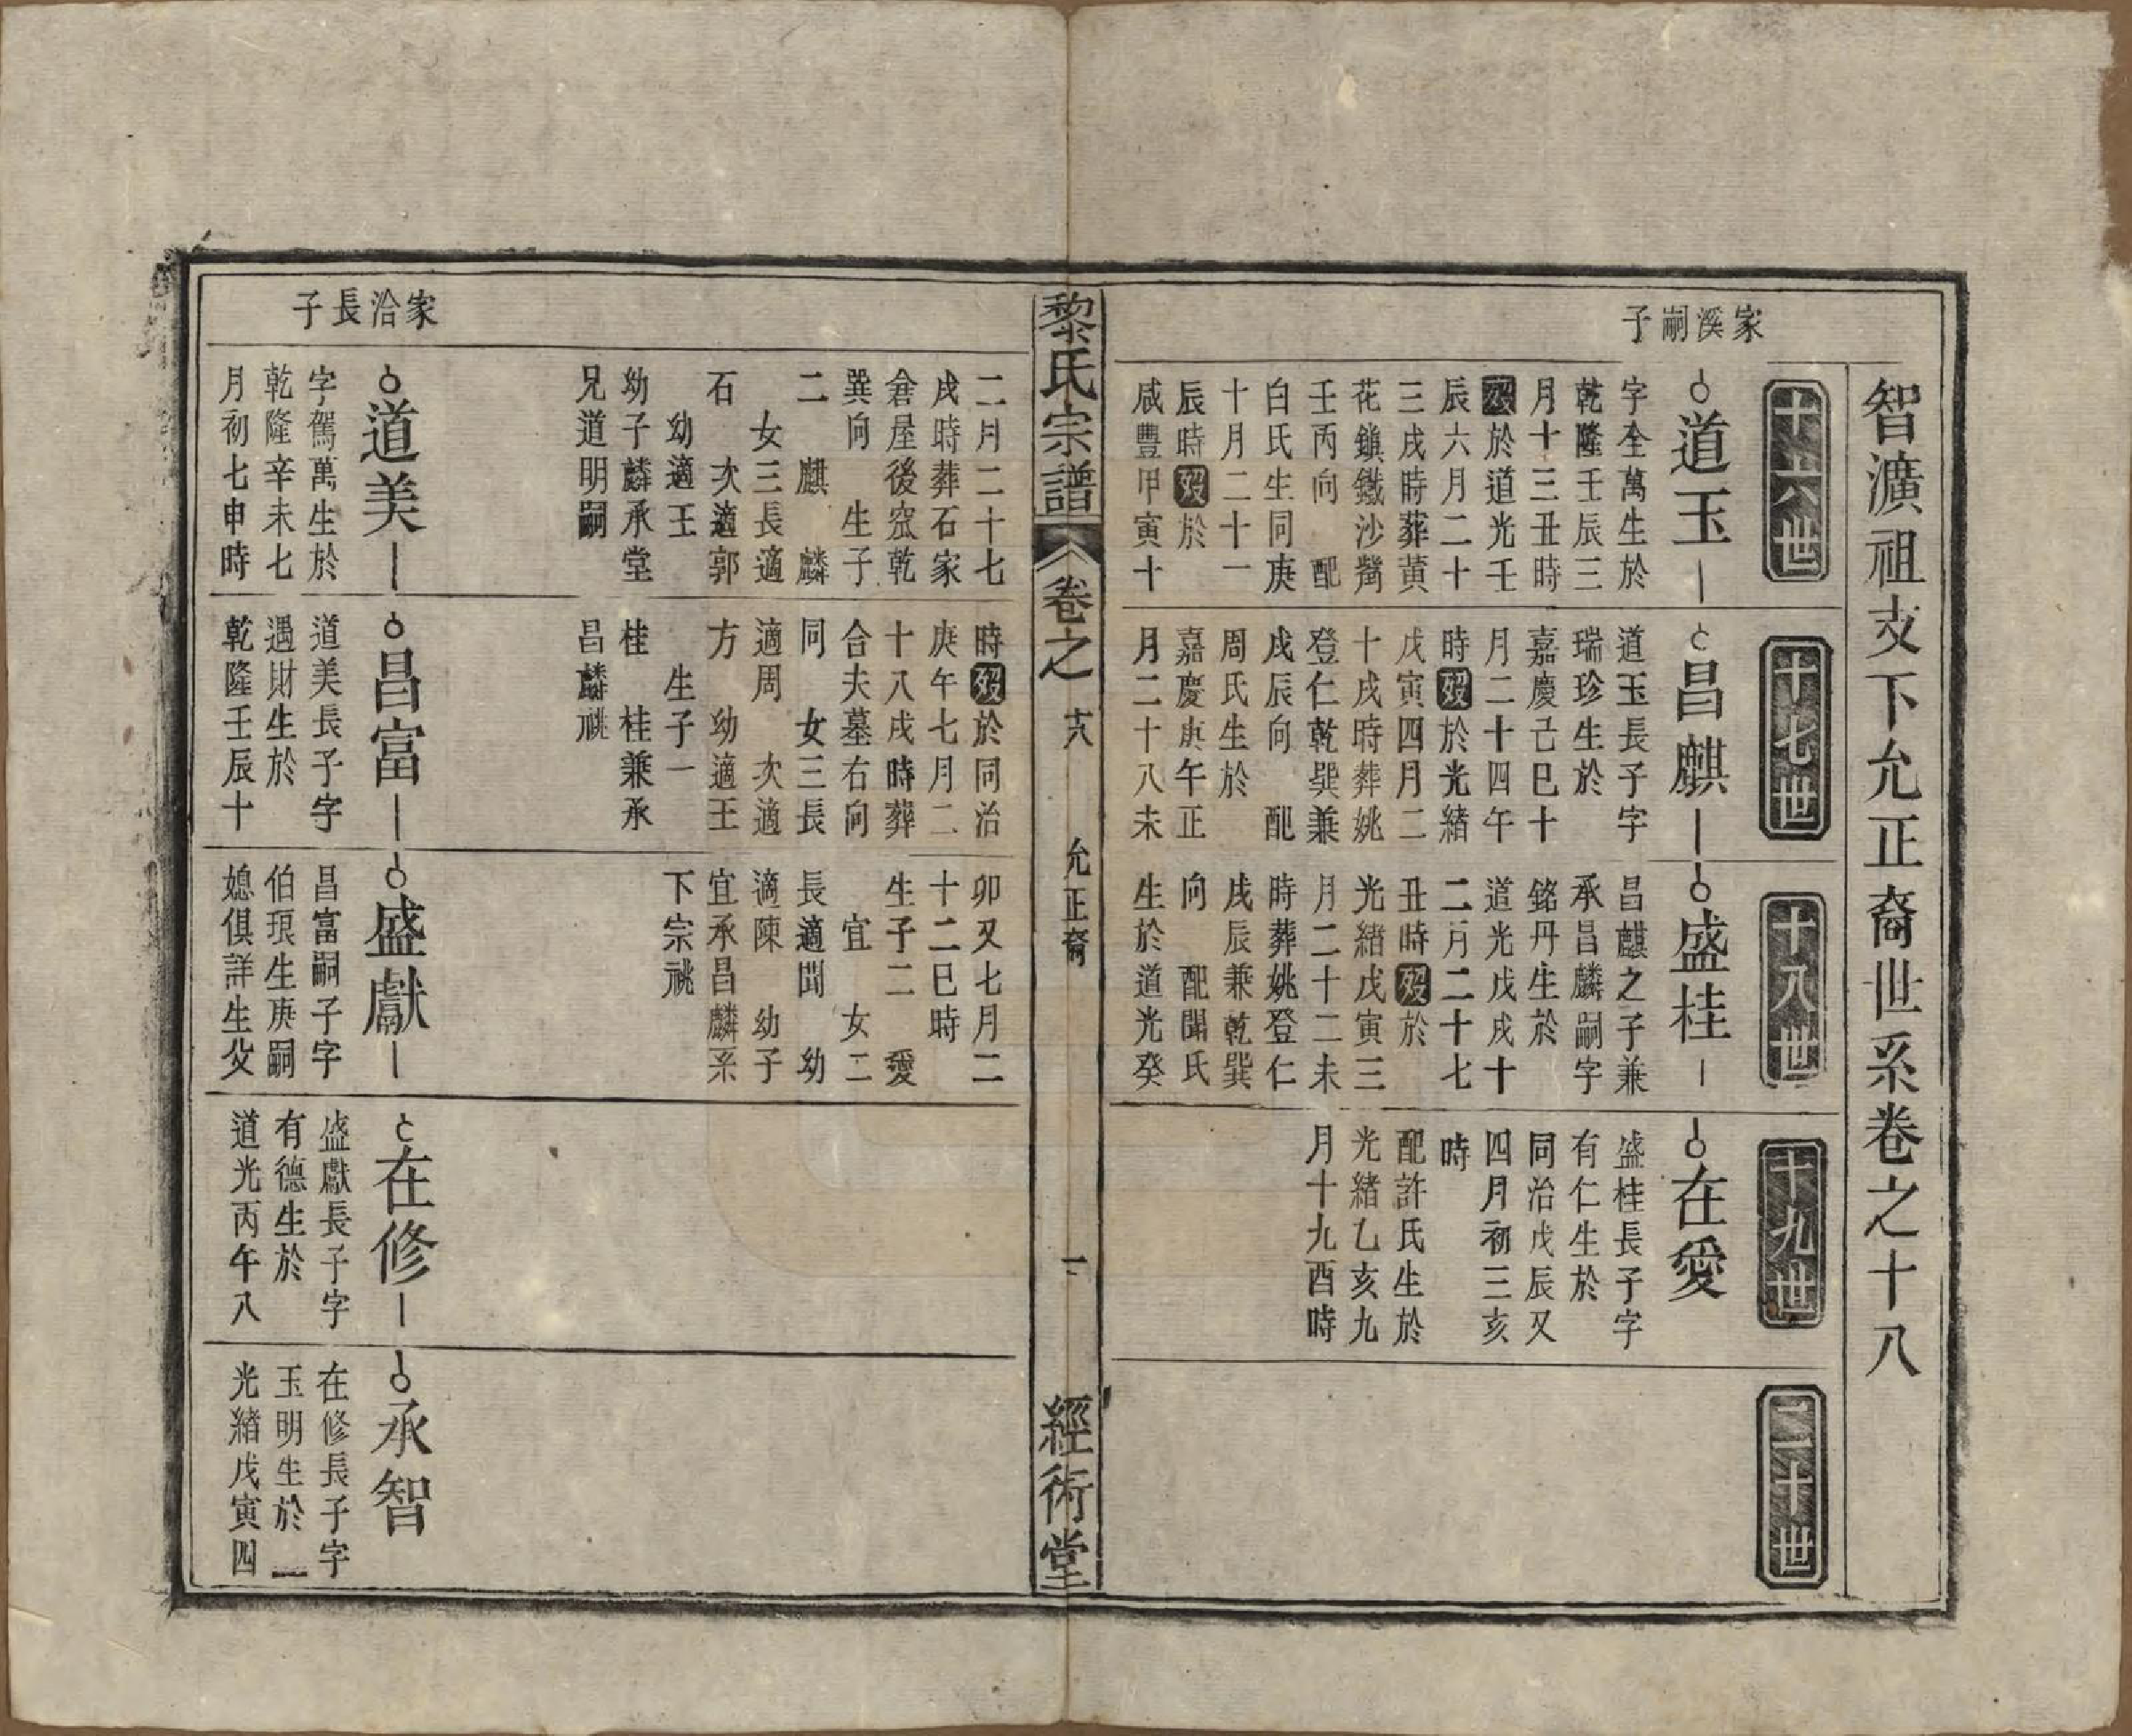 智濆祖支下允正裔世系卷之十八
十六世
十七世
十八世
十九世
二十世
家溪嗣子
道玉
字全萬生於
乾隆壬辰三
月十三丑時
歿於道光壬
辰六月二十
三戌時葬黃
花鎮鐵沙灣
壬丙向 配
白氏生同庚
十月二十一
辰時歿於
咸豐甲寅十
昌麒
道玉長子字
瑞珍生於
嘉慶己巳十
月二十四午
時歿於光緒
戊寅四月二
十戌時葬姚
登仁乾巽兼
戌辰向 配
周氏生於
嘉慶庚午正
月二十八未
盛桂
昌麒之子兼
承昌麟嗣字
銘丹生於
道光戊戌十
二月二十七
丑時歿於
光緒戊寅三
月二十二未
時葬姚登仁
戌辰兼乾巽
向 配聞氏
生於道光癸
在愛
盛桂長子字
有仁生於
同治戊辰又
四月初三亥
時
配許氏生於
光緒乙亥九
月十九酉時
黎氏宗譜
卷之
十八
允正裔
一
經術堂
二月二十七
戌時葬石家
倉屋後窊乾
巽向 生子
二 麒 麟
女三長適
石 次適郭
幼適王
幼子麟承堂
兄道明嗣
時歿於同治
庚午七月二
十八戌時葬
合夫墓右向
同 女三長
適周 次適
方 幼適王
生子一
桂 桂兼承
昌麟祧
卯又七月二
十二巳時
生子二 愛
宜 女二
長適聞 幼
適陳 幼子
宜承昌麟系
下宗祧
家洽長子
道美
字駕萬生於
乾隆辛未七
月初七申時
昌富
道美長子字
遇財生於
乾隆壬辰十
盛獻
昌富嗣子字
伯琅生庚嗣
媳俱詳生父
在修
盛獻長子字
有德生於
道光丙午八
承智
在修長子字
玉明生於
光緒戊寅四